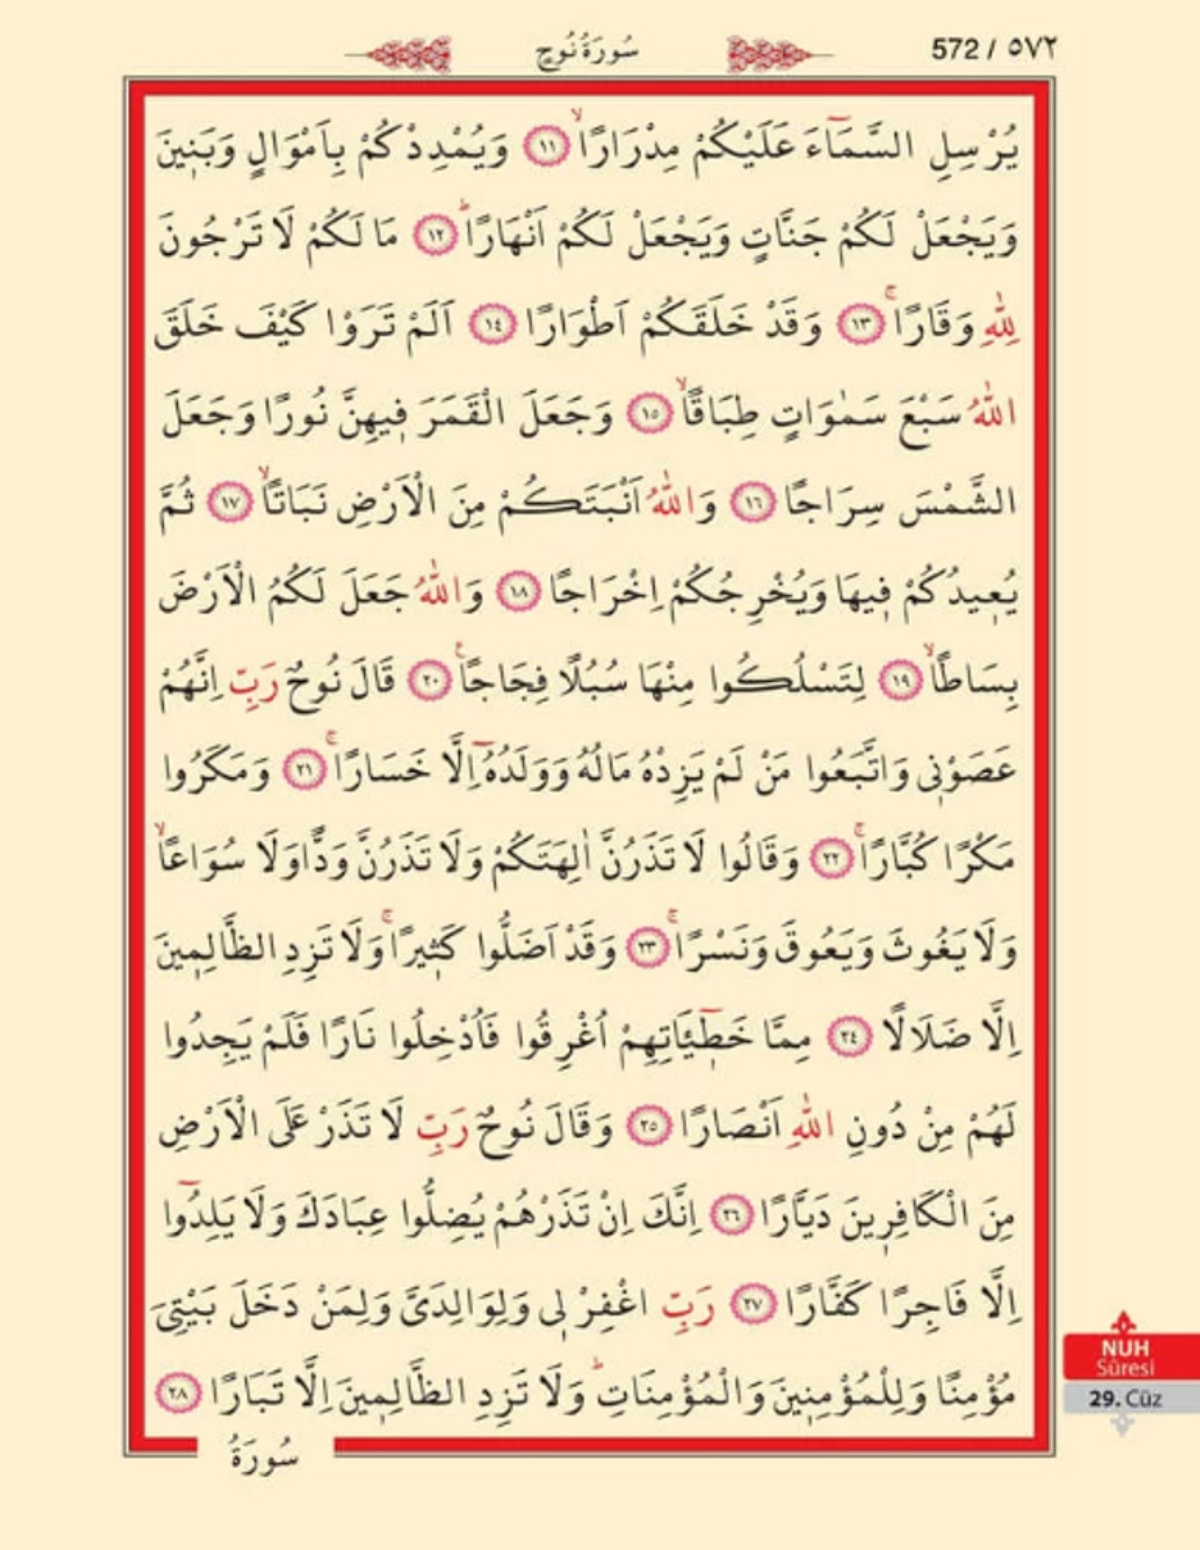 572 / ٥٧٢ سُورَةُ نُوحٍ
يُرْسِلِ السَّمَٓاءَ عَلَيْكُمْ مِدْرَارًاۙ ﴿١١﴾ وَيُمْدِدْكُمْ بِاَمْوَالٍ وَبَنٖينَ
وَيَجْعَلْ لَكُمْ جَنَّاتٍ وَيَجْعَلْ لَكُمْ اَنْهَارًاؕ ﴿١٢﴾ مَا لَكُمْ لَا تَرْجُونَ
لِلّٰهِ وَقَارًاۚ ﴿١٣﴾ وَقَدْ خَلَقَكُمْ اَطْوَارًا ﴿١٤﴾ اَلَمْ تَرَوْا كَيْفَ خَلَقَ
اللّٰهُ سَبْعَ سَمٰوَاتٍ طِبَاقًاۙ ﴿١٥﴾ وَجَعَلَ الْقَمَرَ فٖيهِنَّ نُورًا وَجَعَلَ
الشَّمْسَ سِرَاجًا ﴿١٦﴾ وَاللّٰهُ اَنْبَتَكُمْ مِنَ الْاَرْضِ نَبَاتًاۙ ﴿١٧﴾ ثُمَّ
يُعٖيدُكُمْ فٖيهَا وَيُخْرِجُكُمْ اِخْرَاجًا ﴿١٨﴾ وَاللّٰهُ جَعَلَ لَكُمُ الْاَرْضَ
بِسَاطًاۙ ﴿١٩﴾ لِتَسْلُكُوا مِنْهَا سُبُلًا فِجَاجًاࣖ ﴿٢٠﴾ قَالَ نُوحٌ رَبِّ اِنَّهُمْ
عَصَوْنٖى وَاتَّبَعُوا مَنْ لَمْ يَزِدْهُ مَالُهُ وَوَلَدُهُٓ اِلَّا خَسَارًاۚ ﴿٢١﴾ وَمَكَرُوا
مَكْرًا كُبَّارًاۚ ﴿٢٢﴾ وَقَالُوا لَا تَذَرُنَّ اٰلِهَتَكُمْ وَلَا تَذَرُنَّ وَدًّا وَلَا سُوَاعًاۙ
وَلَا يَغُوثَ وَيَعُوقَ وَنَسْرًاۚ ﴿٢٣﴾ وَقَدْ اَضَلُّوا كَثٖيرًاۚ وَلَا تَزِدِ الظَّالِمٖينَ
اِلَّا ضَلَالًا ﴿٢٤﴾ مِمَّا خَطٖٓيـَٔاتِهِمْ اُغْرِقُوا فَاُدْخِلُوا نَارًا فَلَمْ يَجِدُوا
لَهُمْ مِنْ دُونِ اللّٰهِ اَنْصَارًا ﴿٢٥﴾ وَقَالَ نُوحٌ رَبِّ لَا تَذَرْ عَلَى الْاَرْضِ
مِنَ الْكَافِرٖينَ دَيَّارًا ﴿٢٦﴾ اِنَّكَ اِنْ تَذَرْهُمْ يُضِلُّوا عِبَادَكَ وَلَا يَلِدُٓوا
اِلَّا فَاجِرًا كَفَّارًا ﴿٢٧﴾ رَبِّ اغْفِرْ لٖى وَلِوَالِدَىَّ وَلِمَنْ دَخَلَ بَيْتِىَ
مُؤْمِنًا وَلِلْمُؤْمِنٖينَ وَالْمُؤْمِنَاتِؕ وَلَا تَزِدِ الظَّالِمٖينَ اِلَّا تَبَارًا ﴿٢٨﴾
سُورَةُ
NUH
Sûresi
29. Cüz